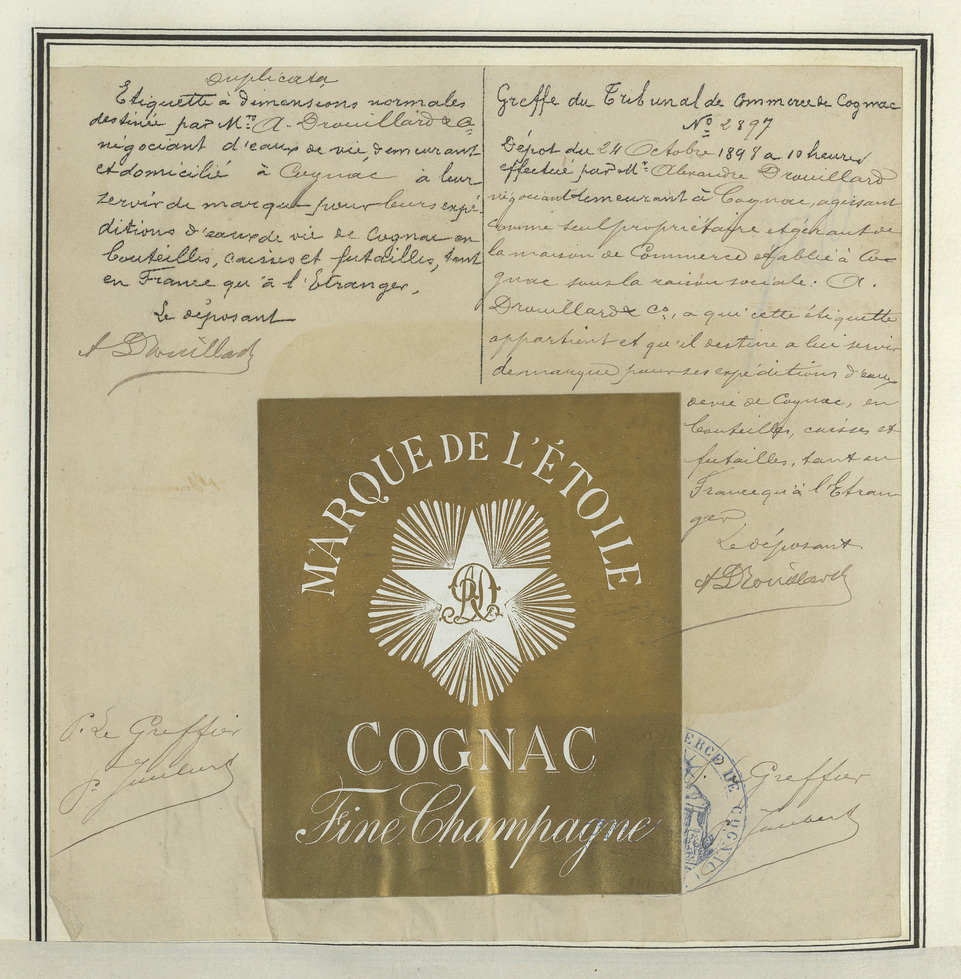 Duplicata
Etiquette à dimensions normales
destinée par Mr. A. Drouillard & Co
négociant d'eaux de vie, demeurant
et domicilié à Cognac à leur
servir de marque pour leurs expé-
ditions d'eaux de vie de Cognac en
bouteilles, caisses et futailles, tant
en France qu'à l'Etranger.
Le déposant
A Drouillard
Greffe du Tribunal de Commerce de Cognac
No 2897
Dépot du 24 Octobre 1898 à 10 heures
effectué par Mr. Alexandre Drouillard
négociant demeurant à Cognac, agissant
comme seul propriétaire et gérant de
la maison de Commerce établie à Co-
gnac sous la raison sociale: A.
Drouillard & Co., a qui cette étiquette
appartient et qu'il destine a lui servir
de marque pour ses expéditions d'eaux
de vie de Cognac, en
bouteilles, caisses et
futailles, tant en
France qu'à l'Etran-
ger
Le déposant
A Drouillard
MARQUE DE L'ÉTOILE
COGNAC
Fine Champagne
P. Le Greffier
P. Jaubert
Greffier
Jaubert
MERCE DE COGNAC